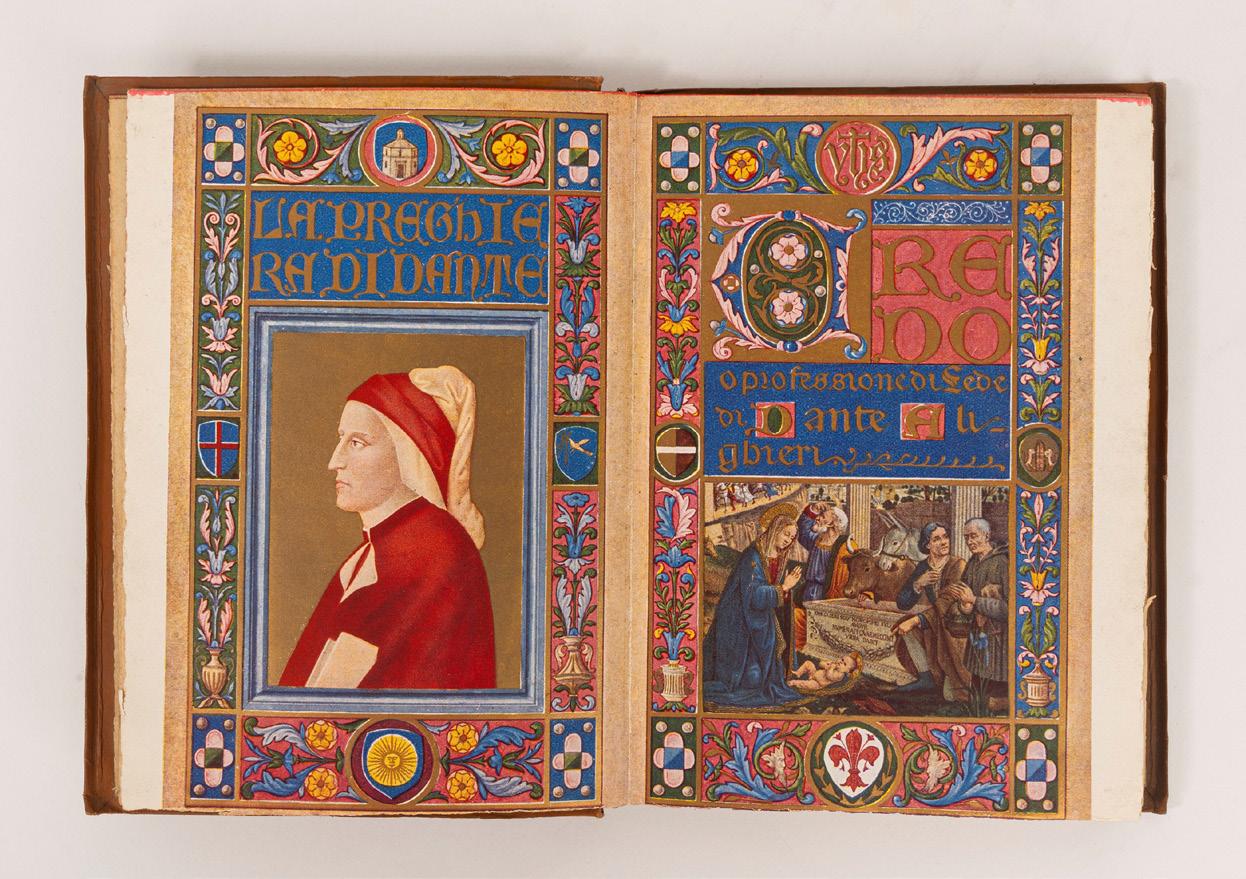 LA PREGHIE
RA DI DANTE
yhs
CRE
DO
o professione di Fede
di Dante Ali-
ghieri